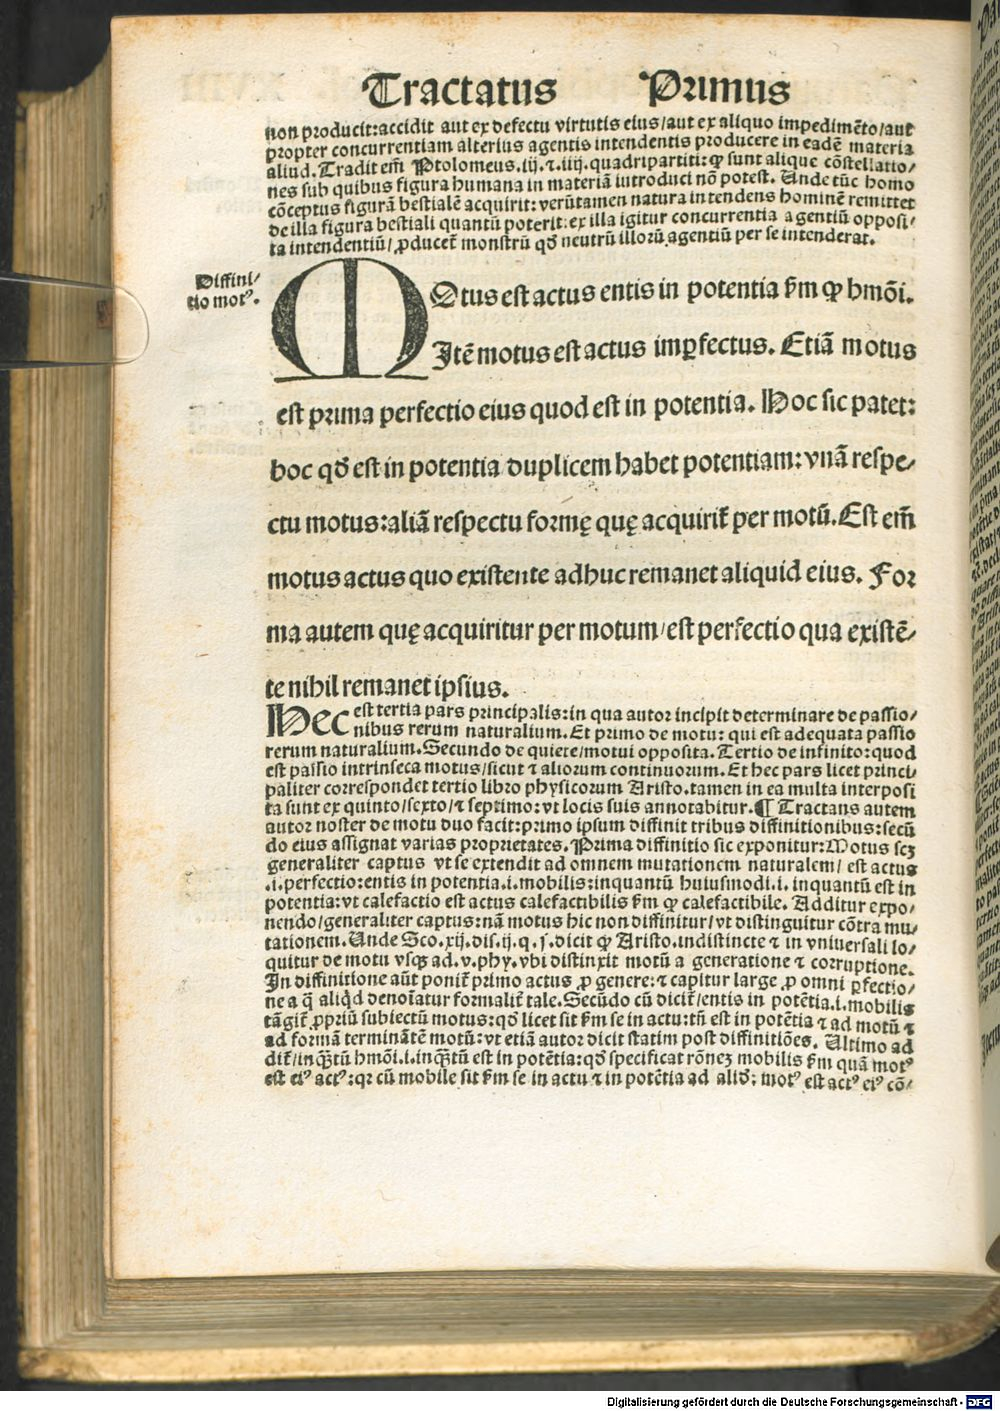 Tractatus Primus
non producit:accidit aut ex defectu virtutis eius/aut ex aliquo impedimẽto/aut
propter concurrentiam alterius agentis intendentis producere in eadẽ materia
aliud. Tradit em̃ Ptolomeus .iij. ⁊ .iiij. quadripartiti: ꝙ sunt alique cõstellatio/
nes sub quibus figura humana in materiã introduci nõ potest. Unde tũc homo
cõceptus figurã bestialẽ acquirit: verũtamen natura intendens hominẽ remittet
de illa figura bestiali quantũ poterit: ex illa igitur concurrentia agentiũ opposi/
ta intendentiũ/ ꝓducet᷑ monstrũ qđ neutrũ illorũ agentiũ per se intenderat.
Diffini/
tio motꝰ.
MOtus est actus entis in potentia ẜm ꝙ hmõi.
Itẽ motus est actus imꝑfectus. Etiã motus
est prima perfectio eius quod est in potentia. Hoc sic patet:
hoc qđ est in potentia duplicem habet potentiam: vnã respe/
ctu motus:aliã respectu formę quę acquirit᷑ per motũ. Est em̃
motus actus quo existente adhuc remanet aliquid eius. For
ma autem quę acquiritur per motum/est perfectio qua existẽ/
te nihil remanet ipsius.
Hec est tertia pars principalis:in qua autor incipit determinare de passio/
nibus rerum naturalium. Et primo de motu: qui est adequata passio
rerum naturalium. Secundo de quiete/motui opposita. Tertio de infinito: quod
est passio intrinseca motus/sicut ⁊ aliorum continuorum. Et hec pars licet princi
paliter correspondet tertio libro physicorum Aristo. tamen in ea multa interposi
ta sunt ex quinto/sexto/⁊ septimo: vt locis suis annotabitur. ¶ Tractans autem
autor noster de motu duo facit: primo ipsum diffinit tribus diffinitionibus: secũ
do eius assignat varias proprietates. Prima diffinitio sic exponitur: Motus scꝫ
generaliter captus vt se extendit ad omnem mutationem naturalem/ est actus
.i. perfectio: entis in potentia .i. mobilis: inquantũ huiusmodi .i. inquantũ est in
potentia: vt calefactio est actus calefactibilis ẜm ꝙ calefactibile. Additur expo/
nendo/generaliter captus: nã motus hic non diffinitur/vt distinguitur cõtra mu/
tationem. Unde Sco. xij. dis. ij. q. s. dicit ꝙ Aristo. indistincte ⁊ in vniuersali lo/
quitur de motu vsqꝫ ad .v. phy. vbi distinxit motũ a generatione ⁊ corruptione.
In diffinitione aũt ponit᷑ primo actus ꝓ genere: ⁊ capitur large ꝓ omni ꝑfectio/
ne a q̃ aliq̇d denoĩatur formalit᷑ tale. Secũdo cũ dicit᷑/entis in potẽtia .i. mobilis
tãgit᷑ ꝓpriũ subiectũ motus: qđ licet sit ẜm se in actu: tñ est in potẽtia ⁊ ad motũ ⁊
ad formã terminãtẽ motũ: vt etiã autor dicit statim post diffinitiões. Ultimo ad
dit᷑/inq̃tũ hmõi .i. inq̃tũ est in potẽtia: qđ specificat rõneꝫ mobilis ẜm quã motꝰ
est eiꝰ actꝰ: qꝛ cũ mobile sit ẜm se in actu ⁊ in potẽtia ad aliđ: motꝰ est actꝰ eiꝰ cõ/
Digitalisierung gefördert durch die Deutsche Forschungsgemeinschaft - DFG